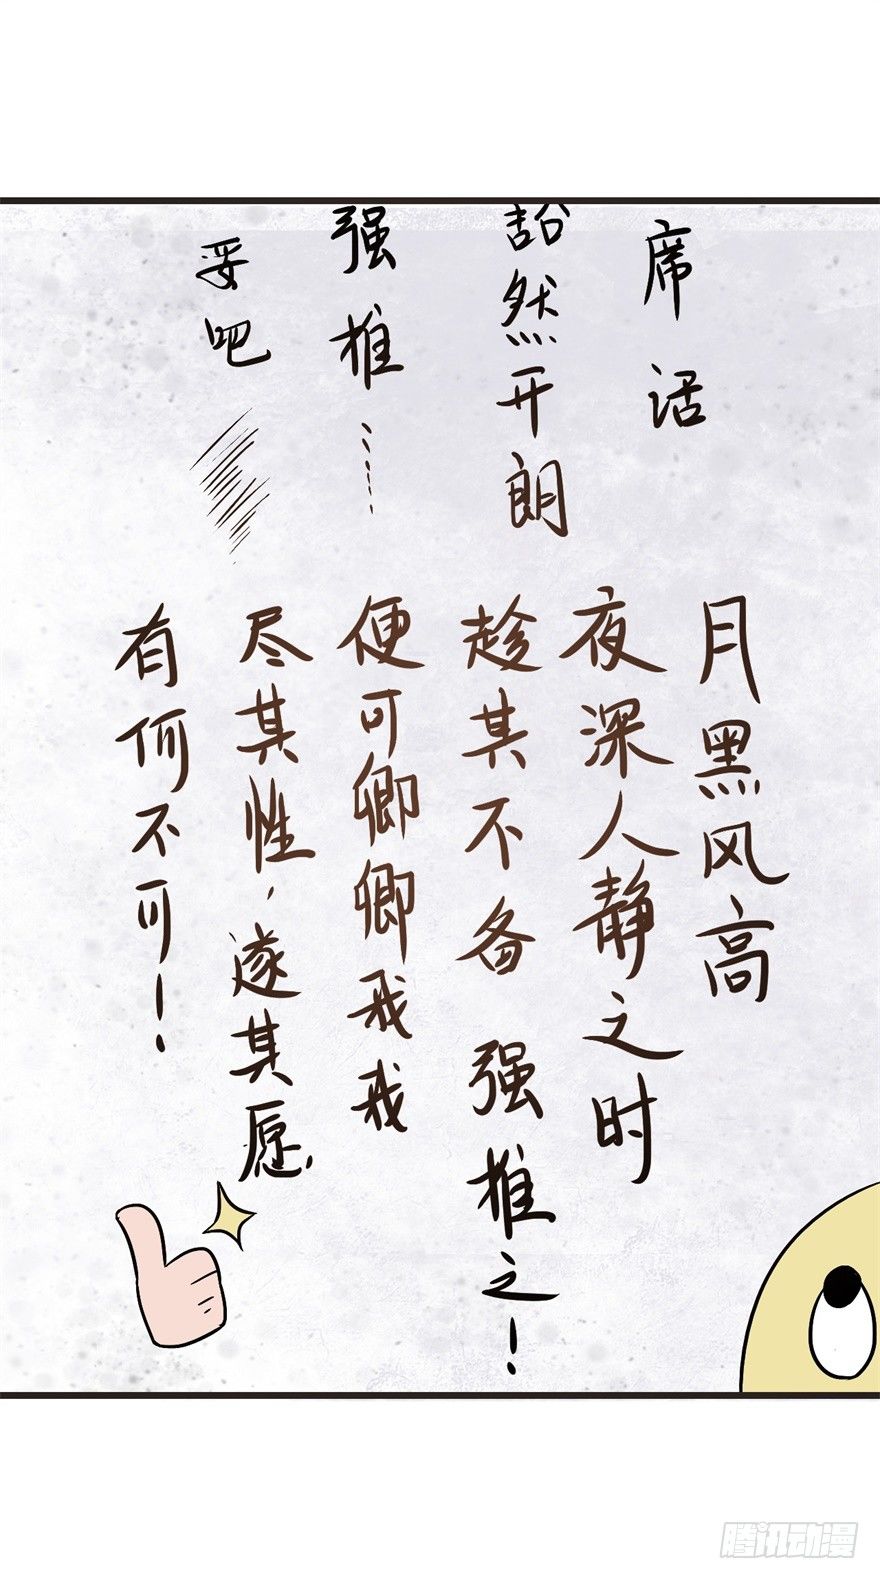 席话
豁然开朗
强推……
妥吧
月黑风高
夜深人静之时
趁其不备 强推之！
便可卿卿我我
尽其性，遂其愿，
有何不可！
腾讯动漫